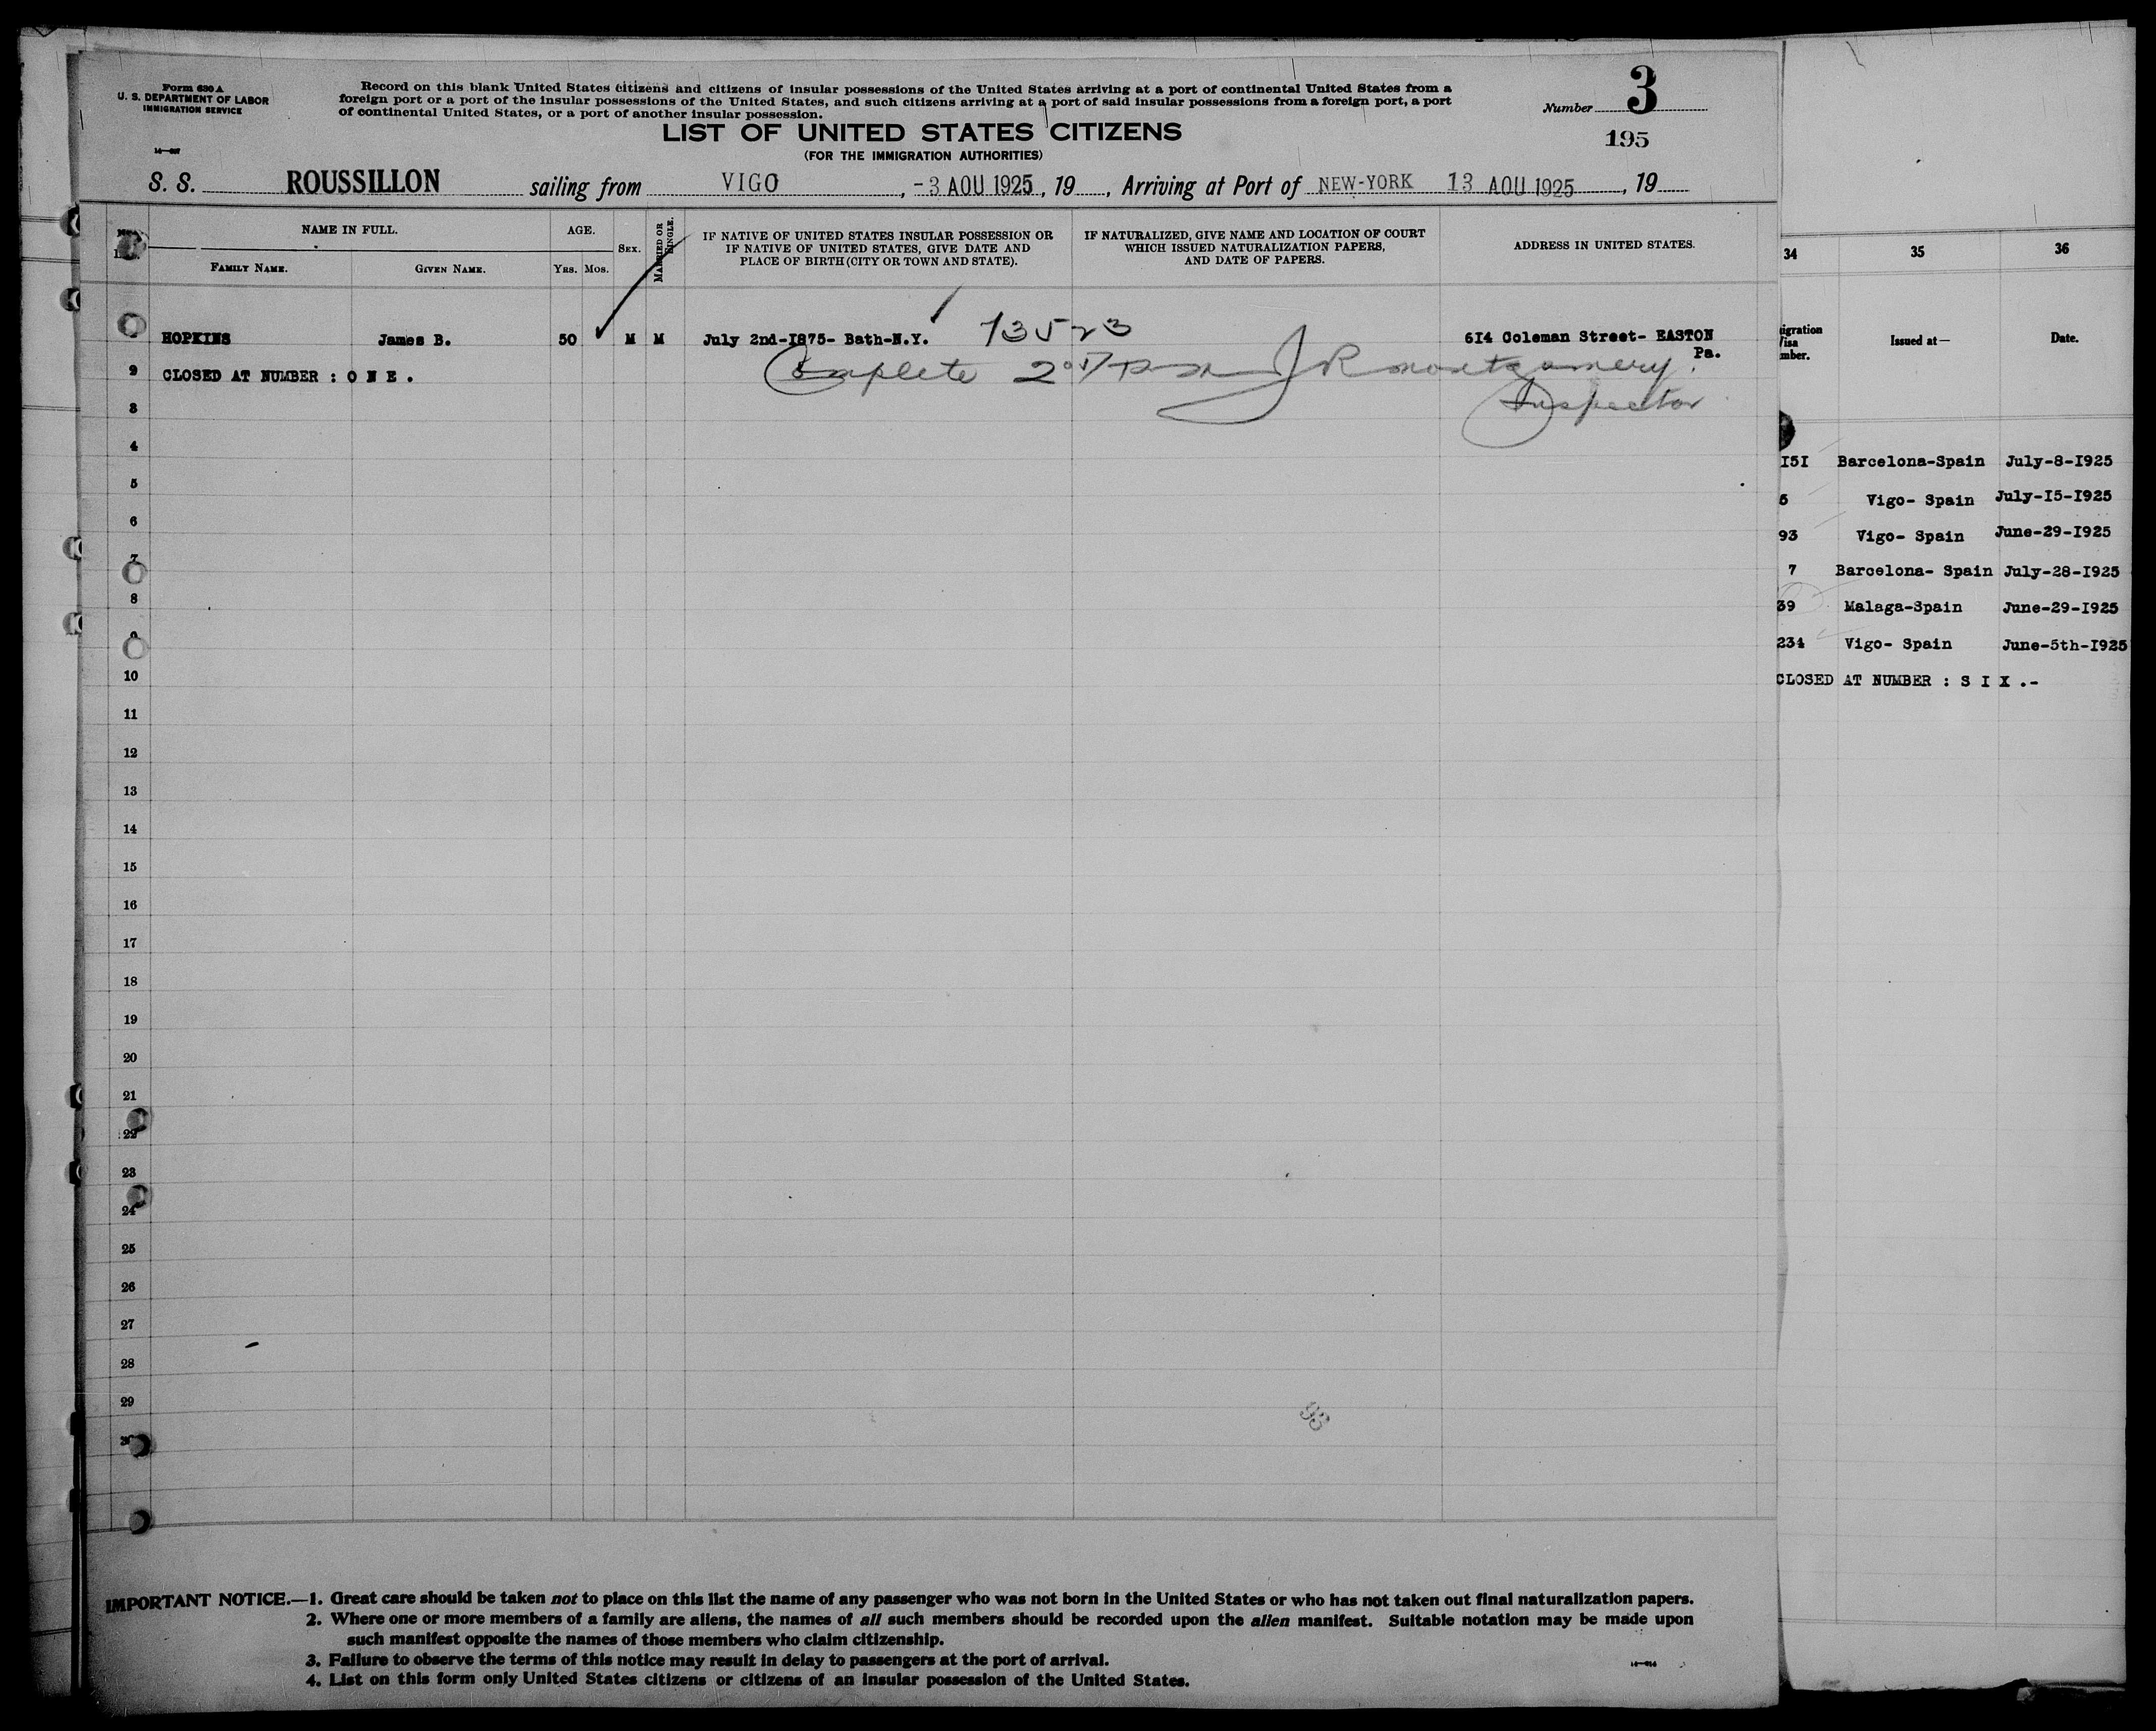 Form 630 A
U. S. DEPARTMENT OF LABOR
IMMIGRATION SERVICE
Record on this blank United States citizens and citizens of insular possessions of the United States arriving at a port of continental United States from a
foreign port or a port of the insular possessions of the United States, and such citizens arriving at a port of said insular possessions from a foreign port, a port
of continental United States, or a port of another insular possession.
Number 3
LIST OF UNITED STATES CITIZENS
195
(FOR THE IMMIGRATION AUTHORITIES)
S. S. ROUSSILLON sailing from VIGO , -3 AOU 1925 , 19 , Arriving at Port of NEW-YORK 13 AOU 1925 , 19
NAME IN FULL.
AGE.
SEX.
MARRIED OR SINGLE.
IF NATIVE OF UNITED STATES INSULAR POSSESSION OR
IF NATIVE OF UNITED STATES, GIVE DATE AND
PLACE OF BIRTH (CITY OR TOWN AND STATE).
IF NATURALIZED, GIVE NAME AND LOCATION OF COURT
WHICH ISSUED NATURALIZATION PAPERS,
AND DATE OF PAPERS.
ADDRESS IN UNITED STATES.
FAMILY NAME. GIVEN NAME. YRS. MOS.
HOPKINS James B. 50 M M July 2nd-I875- Bath-N.Y. 73523 6I4 Coleman Street- EASTON
Pa.
CLOSED AT NUMBER : O N E . Complete J R Montgomery
Inspector
3
4
5
6
7
8
9
10
11
12
13
14
15
16
17
18
19
20
21
22
23
24
25
26
27
28
29
30
95
IMPORTANT NOTICE.—1. Great care should be taken not to place on this list the name of any passenger who was not born in the United States or who has not taken out final naturalization papers.
2. Where one or more members of a family are aliens, the names of all such members should be recorded upon the alien manifest. Suitable notation may be made upon
such manifest opposite the names of those members who claim citizenship.
3. Failure to observe the terms of this notice may result in delay to passengers at the port of arrival.
4. List on this form only United States citizens or citizens of an insular possession of the United States.
34 35 36
Issued at— Date.
I5I Barcelona-Spain July-8-I925
5 Vigo- Spain July-I5-I925
93 Vigo- Spain June-29-I925
7 Barcelona- Spain July-28-I925
39 Malaga-Spain June-29-I925
234 Vigo- Spain June-5th-I925
CLOSED AT NUMBER : S I X .-